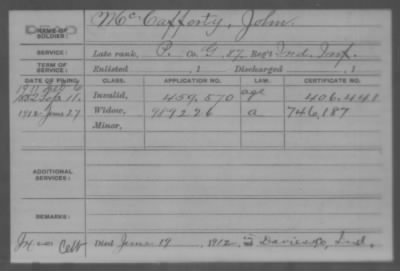 DEAD
NAME OF SOLDIER: McCafforty, John.
SERVICE: Late rank, P. Co. G, 87 Reg't Ind. Inf.
TERM OF SERVICE: Enlisted , 1 Discharged , 1
DATE OF FILING. CLASS. APPLICATION NO. LAW. CERTIFICATE NO.
Invalid, 459.570 age 406.448
1912 June 27 Widow, 989226 a 746,187
Minor,
ADDITIONAL SERVICES:
REMARKS:
Died June 19, 1912, Daviess Co, Ind.